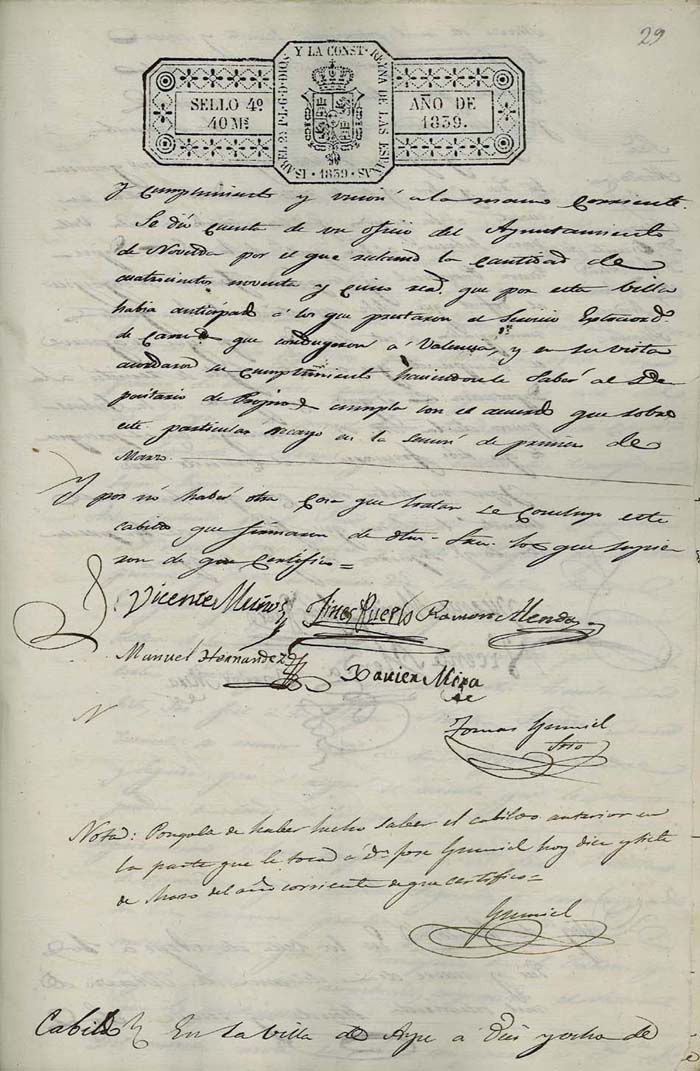 29
ISABEL 2ª P.L.G.D.DIOS Y LA CONST. REYNA DE LAS ESPAÑAS
SELLO 4º
40 Ms
AÑO DE
1839.
1839
y cumplimiento y unión á la mano corriente.
Se dió cuenta de un oficio del Ayuntamiento
de Novelda por el que reclama la cantidad de
cuatrocientos noventa y cinco que por esta Villa
había anticipado á los que prestaron el servicio
de que condugeron á Valencia, y en su vista
acordaron su cumplimiento haciendole saber al De
positario de Propios cumpla con el acuerdo que sobre
este particular recayó en la sesión de primero de
Marzo.
Y por no haber otra cosa que tratar se concluyó este
cabildo que firmaron de los que supie
ron de que certifico =
Vicente Muñoz Gines Ruerto Ramon Alenda
Manuel Hernandez
Xavier Mira
N
Tomas Gumiel
Srio
Nota: Pongola de haber hecho saber el cabildo anterior en
la parte que le toca á Dn Jose Gumiel hoy diez y siete
de Marzo del año corriente de que certifico =
Gumiel
Cabildo En la villa de Aspe á diez y ocho de